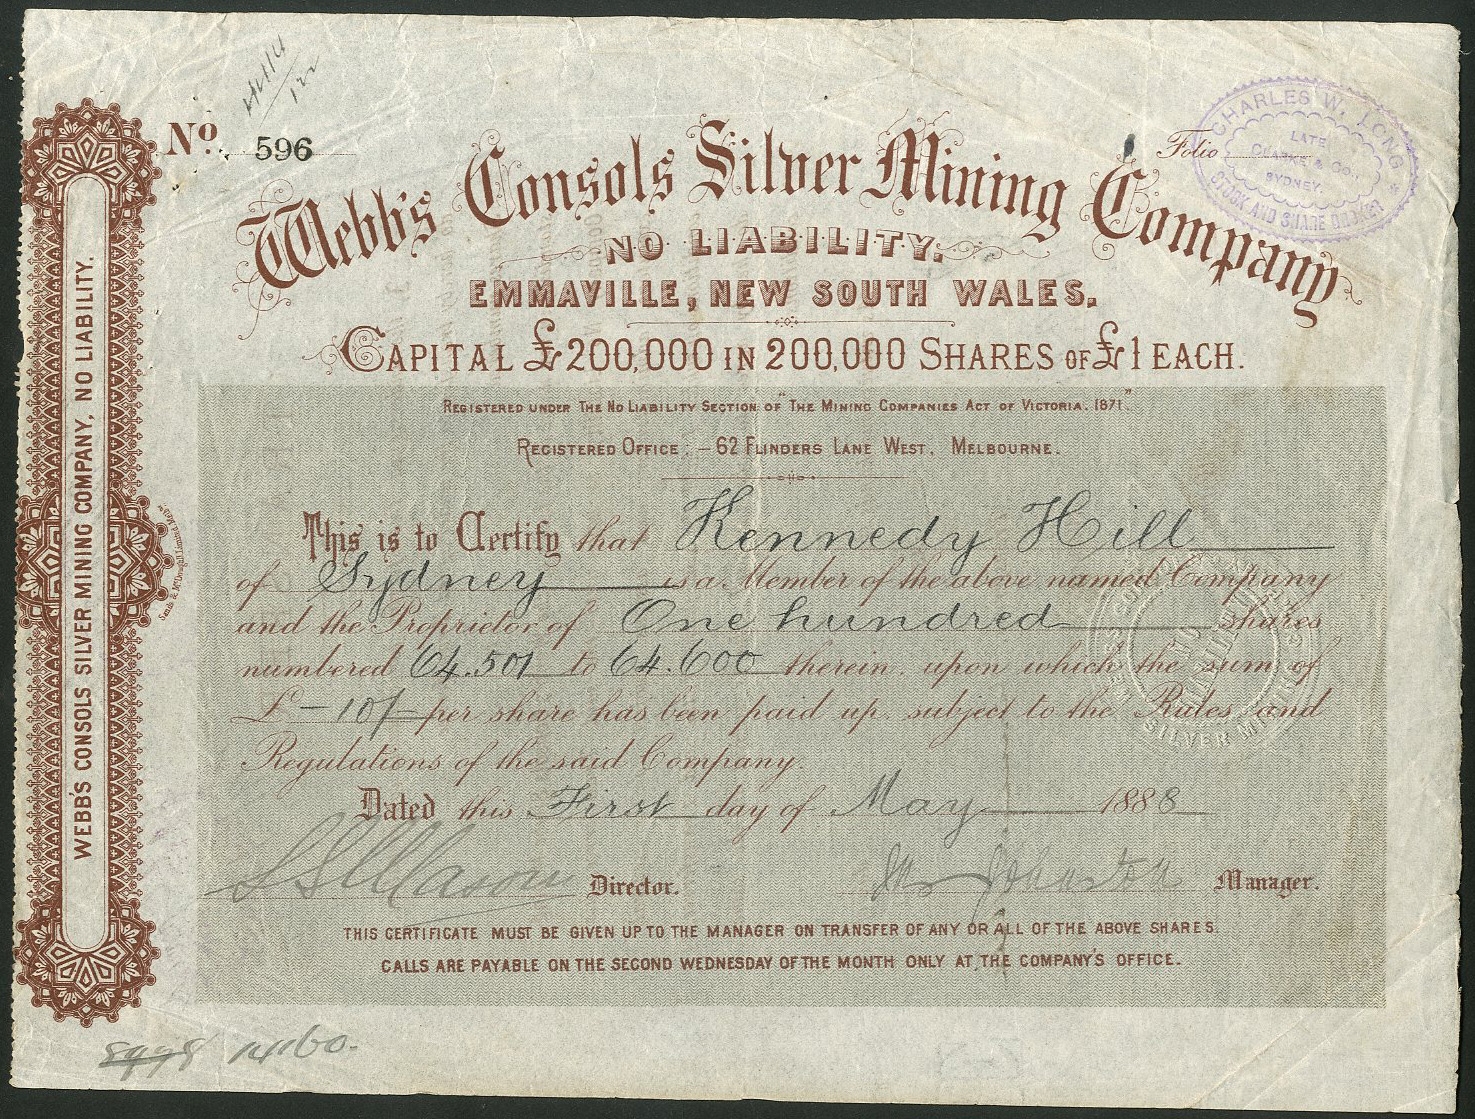 No. 596
Folio
CHARLES W. LONG
LATE
CLARKE & CO.,
SYDNEY.
STOCK AND SHARE BROKER
Webb's Consols Silver Mining Company
NO LIABILITY.
EMMAVILLE, NEW SOUTH WALES.
CAPITAL £200,000 IN 200,000 SHARES OF £1 EACH.
REGISTERED UNDER THE NO LIABILITY SECTION OF "THE MINING COMPANIES ACT OF VICTORIA. 1871."
REGISTERED OFFICE:- 62 FLINDERS LANE WEST, MELBOURNE.
This is to Certify that Kennedy Hill
of Sydney is a Member of the above named Company
and the Proprietor of One hundred shares
numbered 64.501 to 64.600 therein upon which the sum of
£ - 10/- per share has been paid up, subject to the Rules and
Regulations of the said Company.
Dated this First day of May 1888
Director.
Manager.
THIS CERTIFICATE MUST BE GIVEN UP TO THE MANAGER ON TRANSFER OF ANY OR ALL OF THE ABOVE SHARES.
CALLS ARE PAYABLE ON THE SECOND WEDNESDAY OF THE MONTH ONLY AT THE COMPANY'S OFFICE.
WEBB'S CONSOLS SILVER MINING COMPANY, NO LIABILITY.
Sands & McDougall Limited, Melb.
NO
LIABILITY
SILVER MINING
8498 14160.